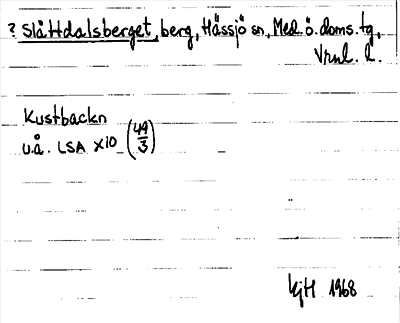 ? Slåttdalsberget, berg, Hässjö sn, Med. ö. doms. tg,
Vrnl. l.
Kustbackn
u.å. LSA X10 (49/3)
KjH 1968